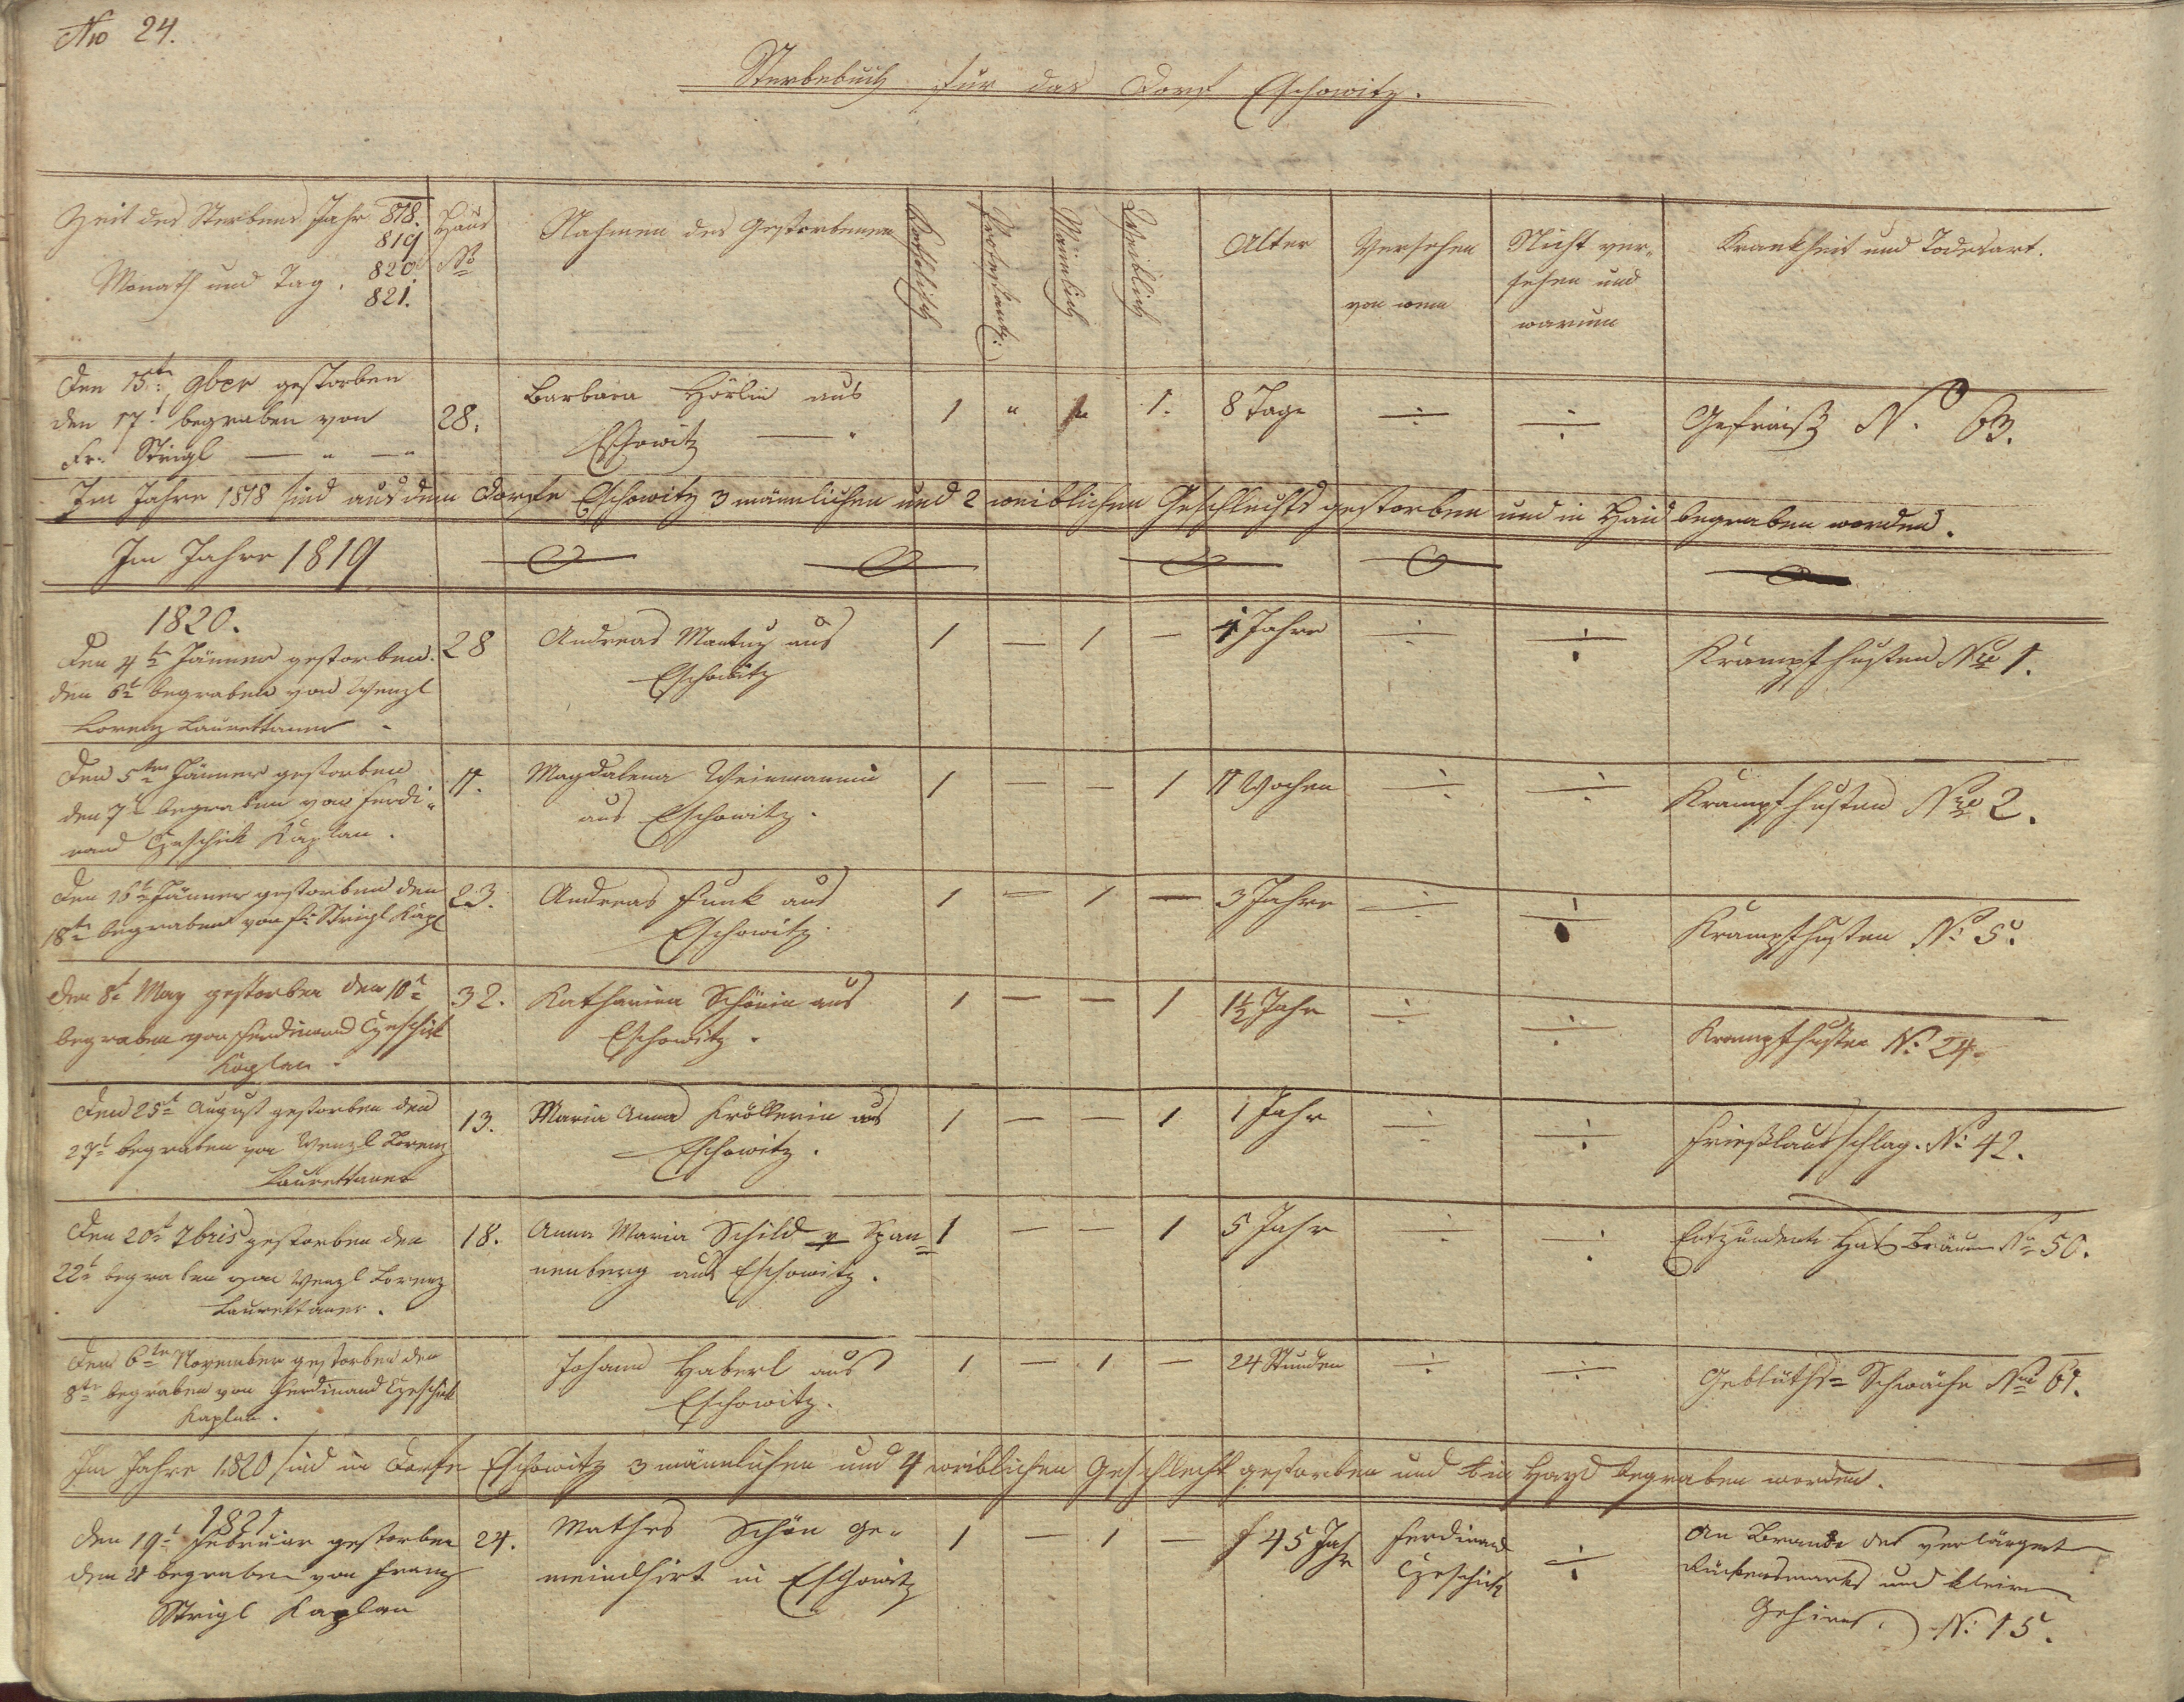 No 24.
Sterbebuch für das Dorf Eschowitz.
Zeit des Sterbens Jahr 818.
819
Monath und Tag. 820
821.
Haus
No
Nahmen des Gestorbenen
Katholisch
Protestantz:
Männlich
Weiblich
Alter
Versehen
von wem
Nicht ver-
sehen und
warum
Krankheit und Todesart.
Den 15t 9ber gestorben
den 17t begraben von
Fr. Strigl — " — "
28.
Barbara Hörlin aus
Eschowitz — "
1 " " 1. 8 Tage ÷ ÷
Gefraiß No. 63.
Im Jahre 1818 sind aus dem Dorfe Eschowitz 3 männlichen und 2 weiblichen Geschlechts gestorben und in Haid begraben worden.
Im Jahre 1819
1820.
Den 4t Jänner gestorben.
den 6t begraben von Wenzl
Lorenz Laurettaner -
28
Andreas Mantuz aus
Eschowitz
1 — 1 — Jahre ÷ ÷
Krampfhusten Nro 1.
Den 5ten Jänner gestorben
den 7t begraben von Ferdi-
nand Czeschik Kaplan.
11.
Magdalena Weinmannin
aus Eschowitz.
1 — — 1 11 Wochen ÷ ÷
Krampfhusten Nro 2.
Den 16t Jänner gestorben den
18t begraben von Fr. Strigl Kapl
23.
Andreas Funk aus
Eschowitz.
1 — 1 — 3 Jahre ÷ ÷
Krampfhusten No. 5.
Den 8t May gestorben den 10t
begraben von Ferdinand Czeschik
Kaplan -
32.
Katharina Schönin aus
Eschowitz.
1 — — 1 1½ Jahr ÷ ÷
Krampfhusten No. 24.
Den 25t August gestorben den
27t begraben von Wenzl Lorenz
Laurettaner
13.
Maria Anna Kröllerin aus
Eschowitz.
1 — — 1 1 Jahr ÷ ÷
Frießlausschlag. No. 42.
Den 20t 7bris gestorben den
22t begraben von Wenzl Lorenz
Laurettaner.
18.
Anna Maria Schild v Span=
nenberg aus Eschowitz.
1 — — 1 5 Jahr ÷ ÷
Entzündente Hals Bräune No 50.
Den 6ten November gestorben den
8te begraben von Ferdinand Czeschik
Kaplan.
Johann Haberl aus
Eschowitz.
1 — 1 — 24 Stunden ÷ ÷
Geblüths= Schwäche Nro 61.
Im Jahre 1820 sind in Dorfe Eschowitz 3 männlichen und 4 weiblichen Geschlecht gestorben und in Hayd begraben worden.
1821
Den 19t Februar gestorben
den 21 begraben von Franz
Strigl Kaplan
24.
Mathes Schön Ge-
meindhirt in Eschowitz
1 — 1 — 45 Jahr
Ferdinand
Czeschick
÷
An Brande des verlängert
Rückensmarks und kleinen
Gehirns. No. 15.